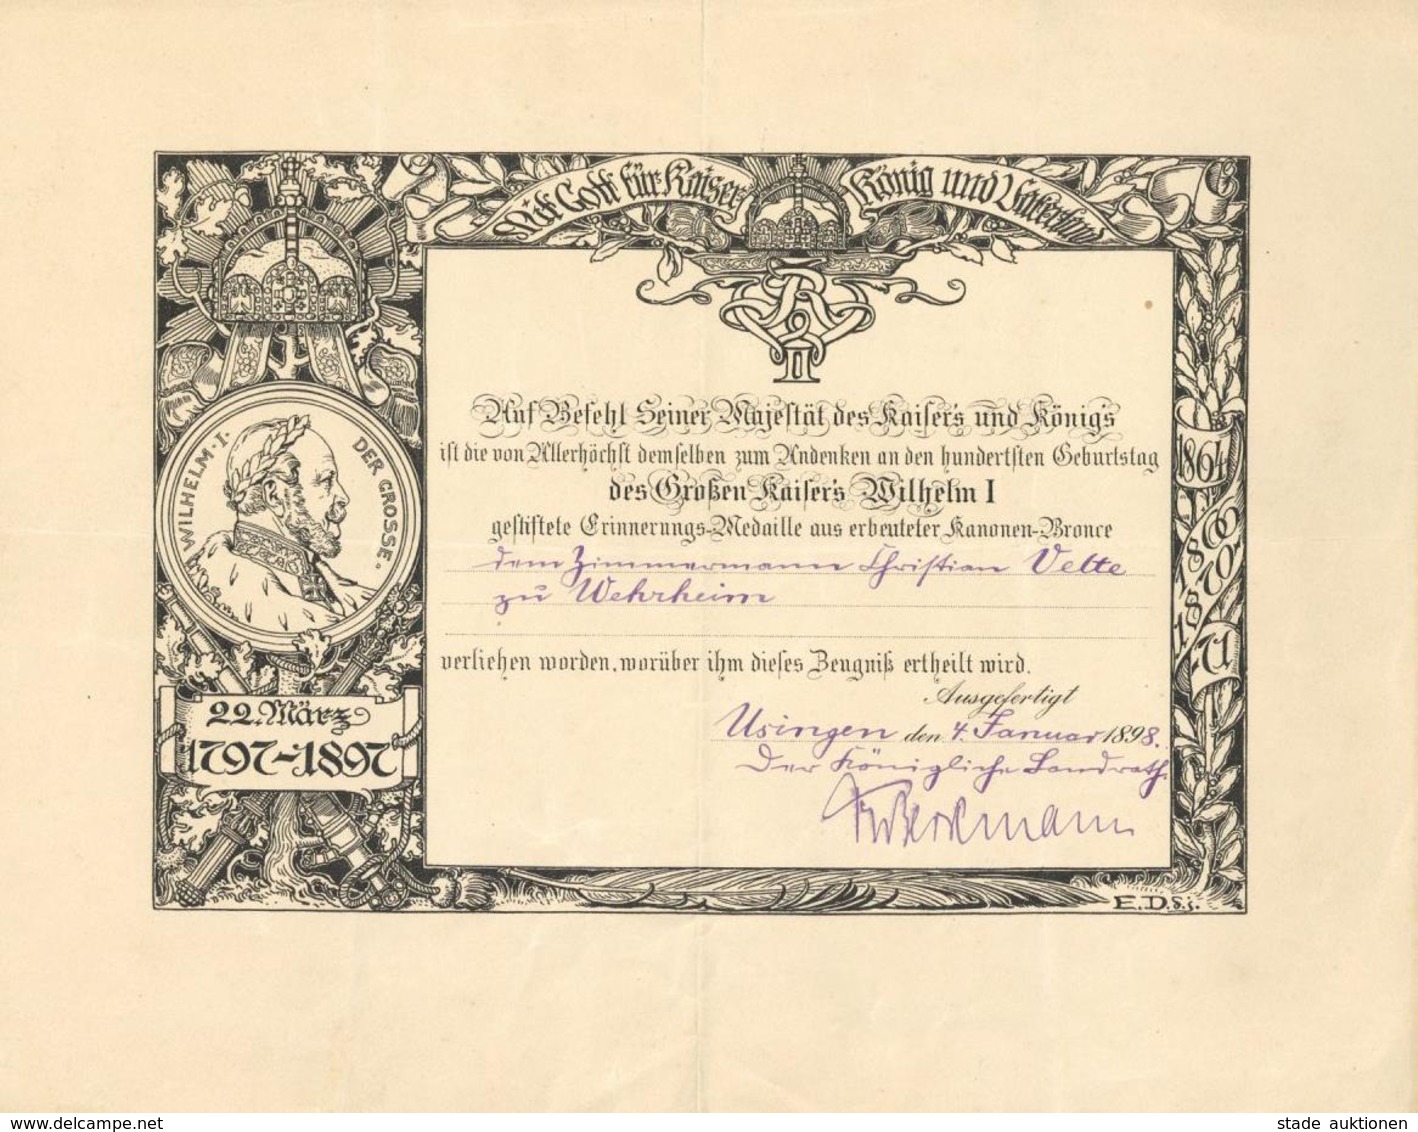 Mit Gott für Kaiser König und Vaterland
WILHELM·I· DER GROSSE.
22. März
1797-1897
1864
1866
1870
-71
Auf Befehl Seiner Majestät des Kaisers und Königs
ist die von Allerhöchst demselben zum Andenken an den hundertsten Geburtstag
des Großen Kaisers Wilhelm I
gestiftete Erinnerungs-Medaille aus erbeuteter Kanonen-Bronce
dem Zimmermann Christian Velte
zu Wehrheim
verliehen worden, worüber ihm dieses Zeugniß ertheilt wird.
Ausgefertigt
Usingen den 4. Januar 1898.
Der Königliche Landrath
E.D.
www.delcampe.net
stade auktionen